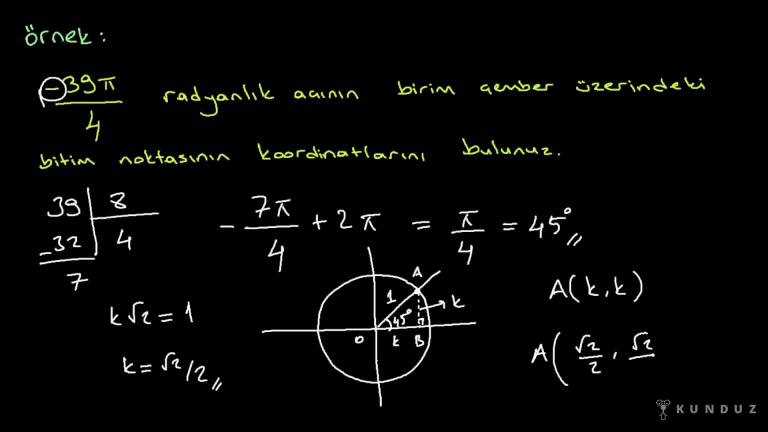 örnek:
-39π/4 radyanlık açının birim çember üzerindeki
bitim noktasının koordinatlarını bulunuz.
39 | 8
-32 | 4
7
-7π/4 + 2π = π/4 = 45°
k√2 = 1
k = √2/2
A
1
k
45°
O
k
B
A(k, k)
A(√2/2, √2
KUNDUZ